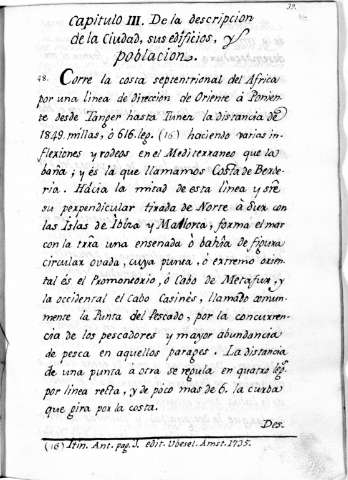 39.
Capitulo III. De la descripcion
de la Ciudad, sus edificios, y
poblacion.
48. Corre la costa septentrional del Africa
por una linea de direccion de Oriente á Ponien-
te desde Tanger hasta Tunez la distancia de
1849. millas, ó 616. leg. (16) haciendo varias in-
flexiones y rodeos en el Mediterraneo que la
baña; y és la que llamamos Costa de Berbe-
ria. Hácia la mitad de esta linea y sre
su perpendicular tirada de Norte á Sur con
las Islas de Ibiza y Mallorca, forma el mar
con la trra una ensenada ó bahia de figura
circular ovada, cuya punta, ó extremo orien-
tal és el Promontorio, ó Cabo de Metafux, y
la occidental el Cabo Casines, llamado comun-
mente la Punta del Pescado, por la concurren-
cia de los pescadores y mayor abundancia
de pesca en aquellos parages. La distancia
de una punta á otra se regula en quatro leg.
por linea recta, y de póco mas de 6. la curba
que gira por la costa.
Des.
(16) Itin. Ant. pag. 3. edit. Wesel. Amst. 1735.